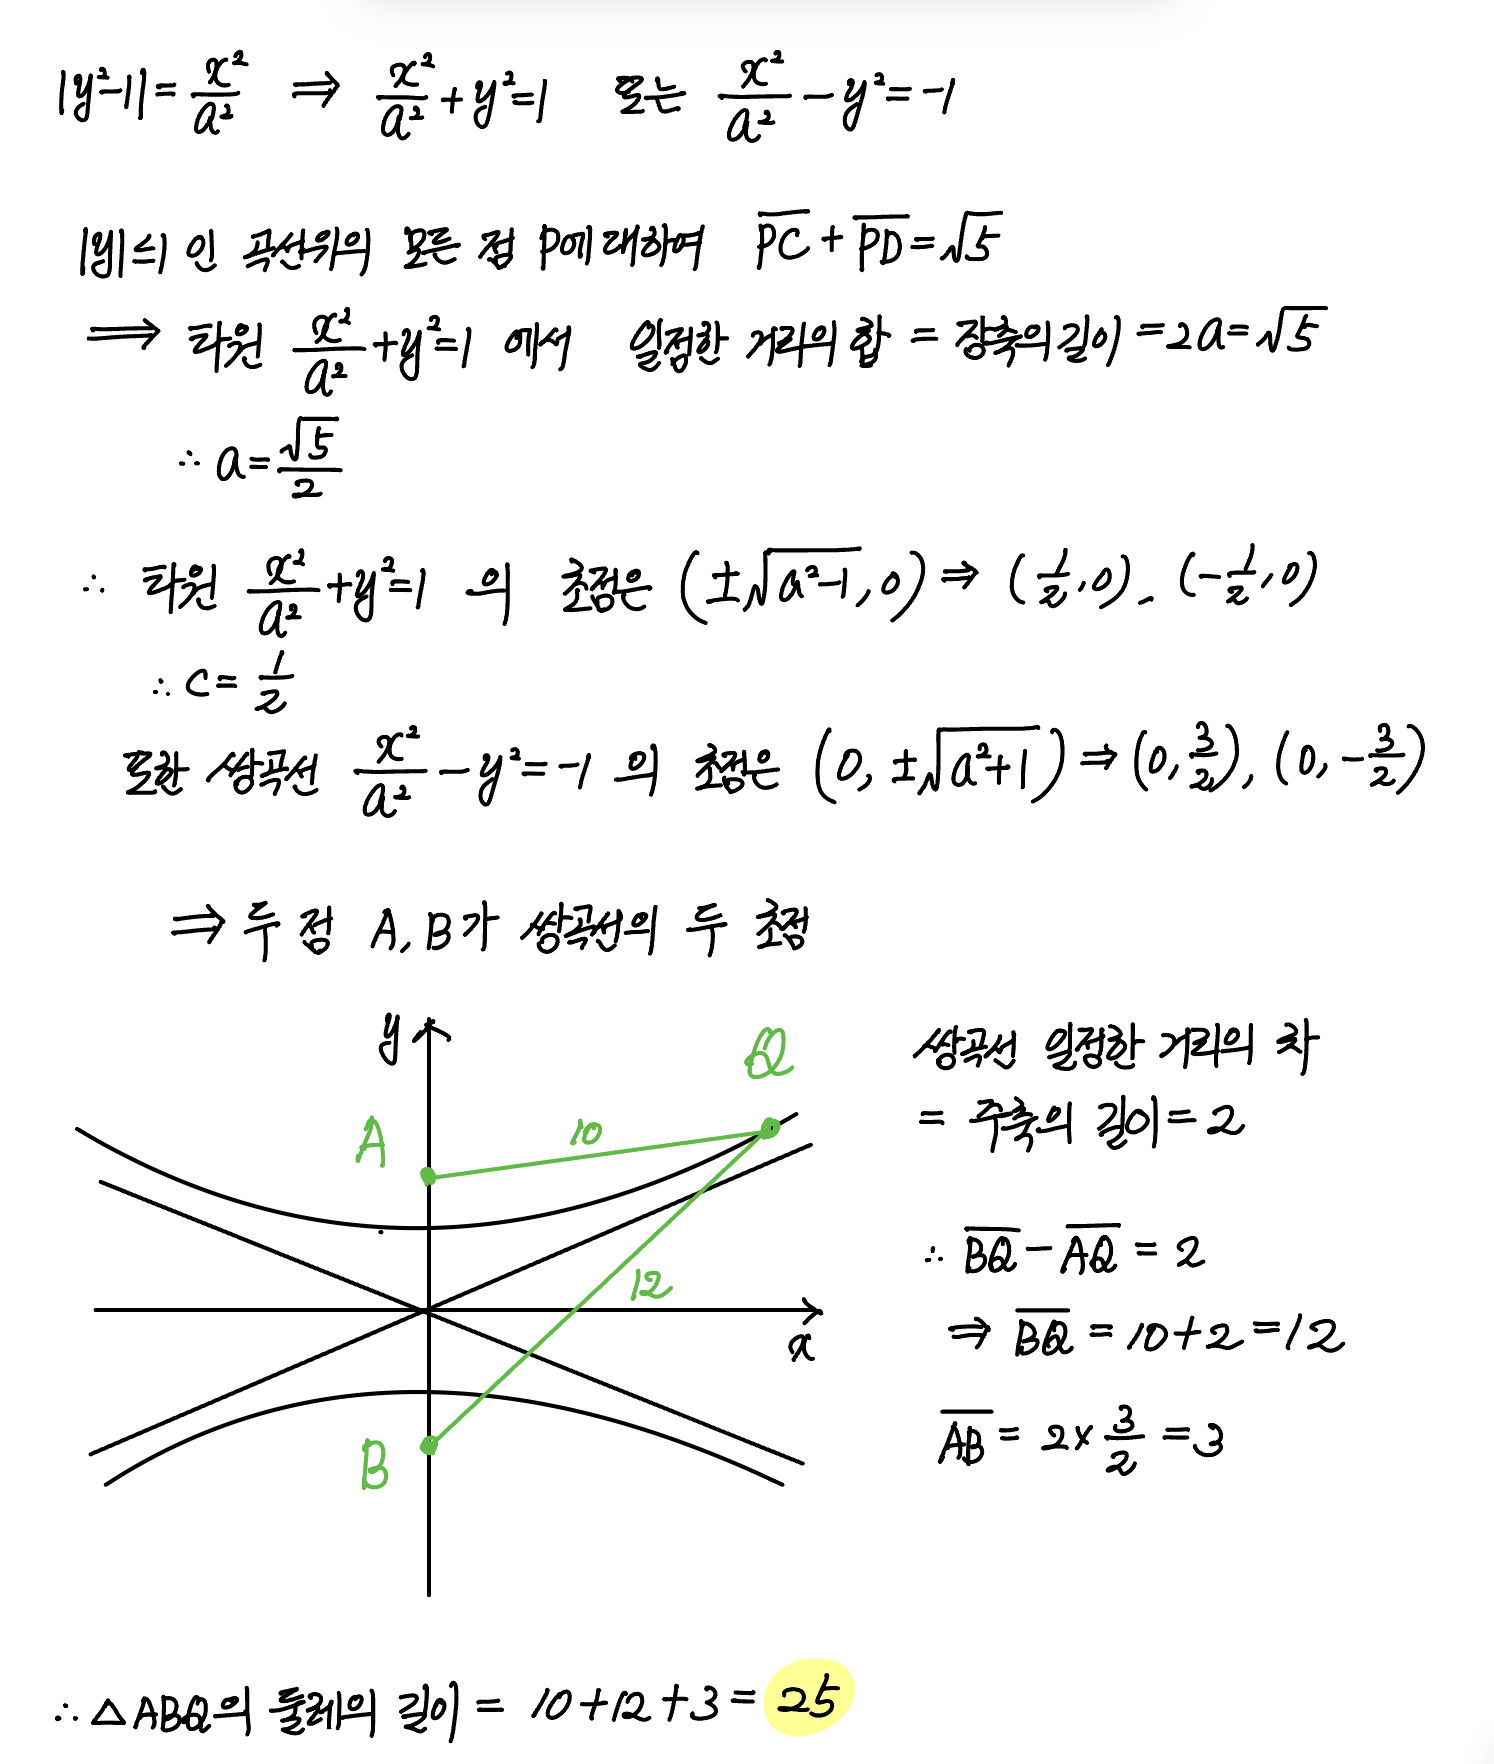 |y²-1| = x²/a² ⇒ x²/a² + y² = 1 또는 x²/a² - y² = -1
|y| ≤ 1 인 곡선위의 모든 점 P에 대하여 P̅C̅ + P̅D̅ = √5
⇒ 타원 x²/a² + y² = 1 에서 일정한 거리의 합 = 장축의 길이 = 2a = √5
∴ a = √5/2
∴ 타원 x²/a² + y² = 1 의 초점은 (±√(a²-1), 0) ⇒ (1/2, 0), (-1/2, 0)
∴ c = 1/2
또한 쌍곡선 x²/a² - y² = -1 의 초점은 (0, ±√(a²+1)) ⇒ (0, 3/2), (0, -3/2)
⇒ 두 점 A, B가 쌍곡선의 두 초점
y
Q
A
10
12
x
B
쌍곡선 일정한 거리의 차
= 주축의 길이 = 2
∴ B̅Q̅ - A̅Q̅ = 2
⇒ B̅Q̅ = 10+2 = 12
A̅B̅ = 2 × 3/2 = 3
∴ △ABQ의 둘레의 길이 = 10+12+3 = 25